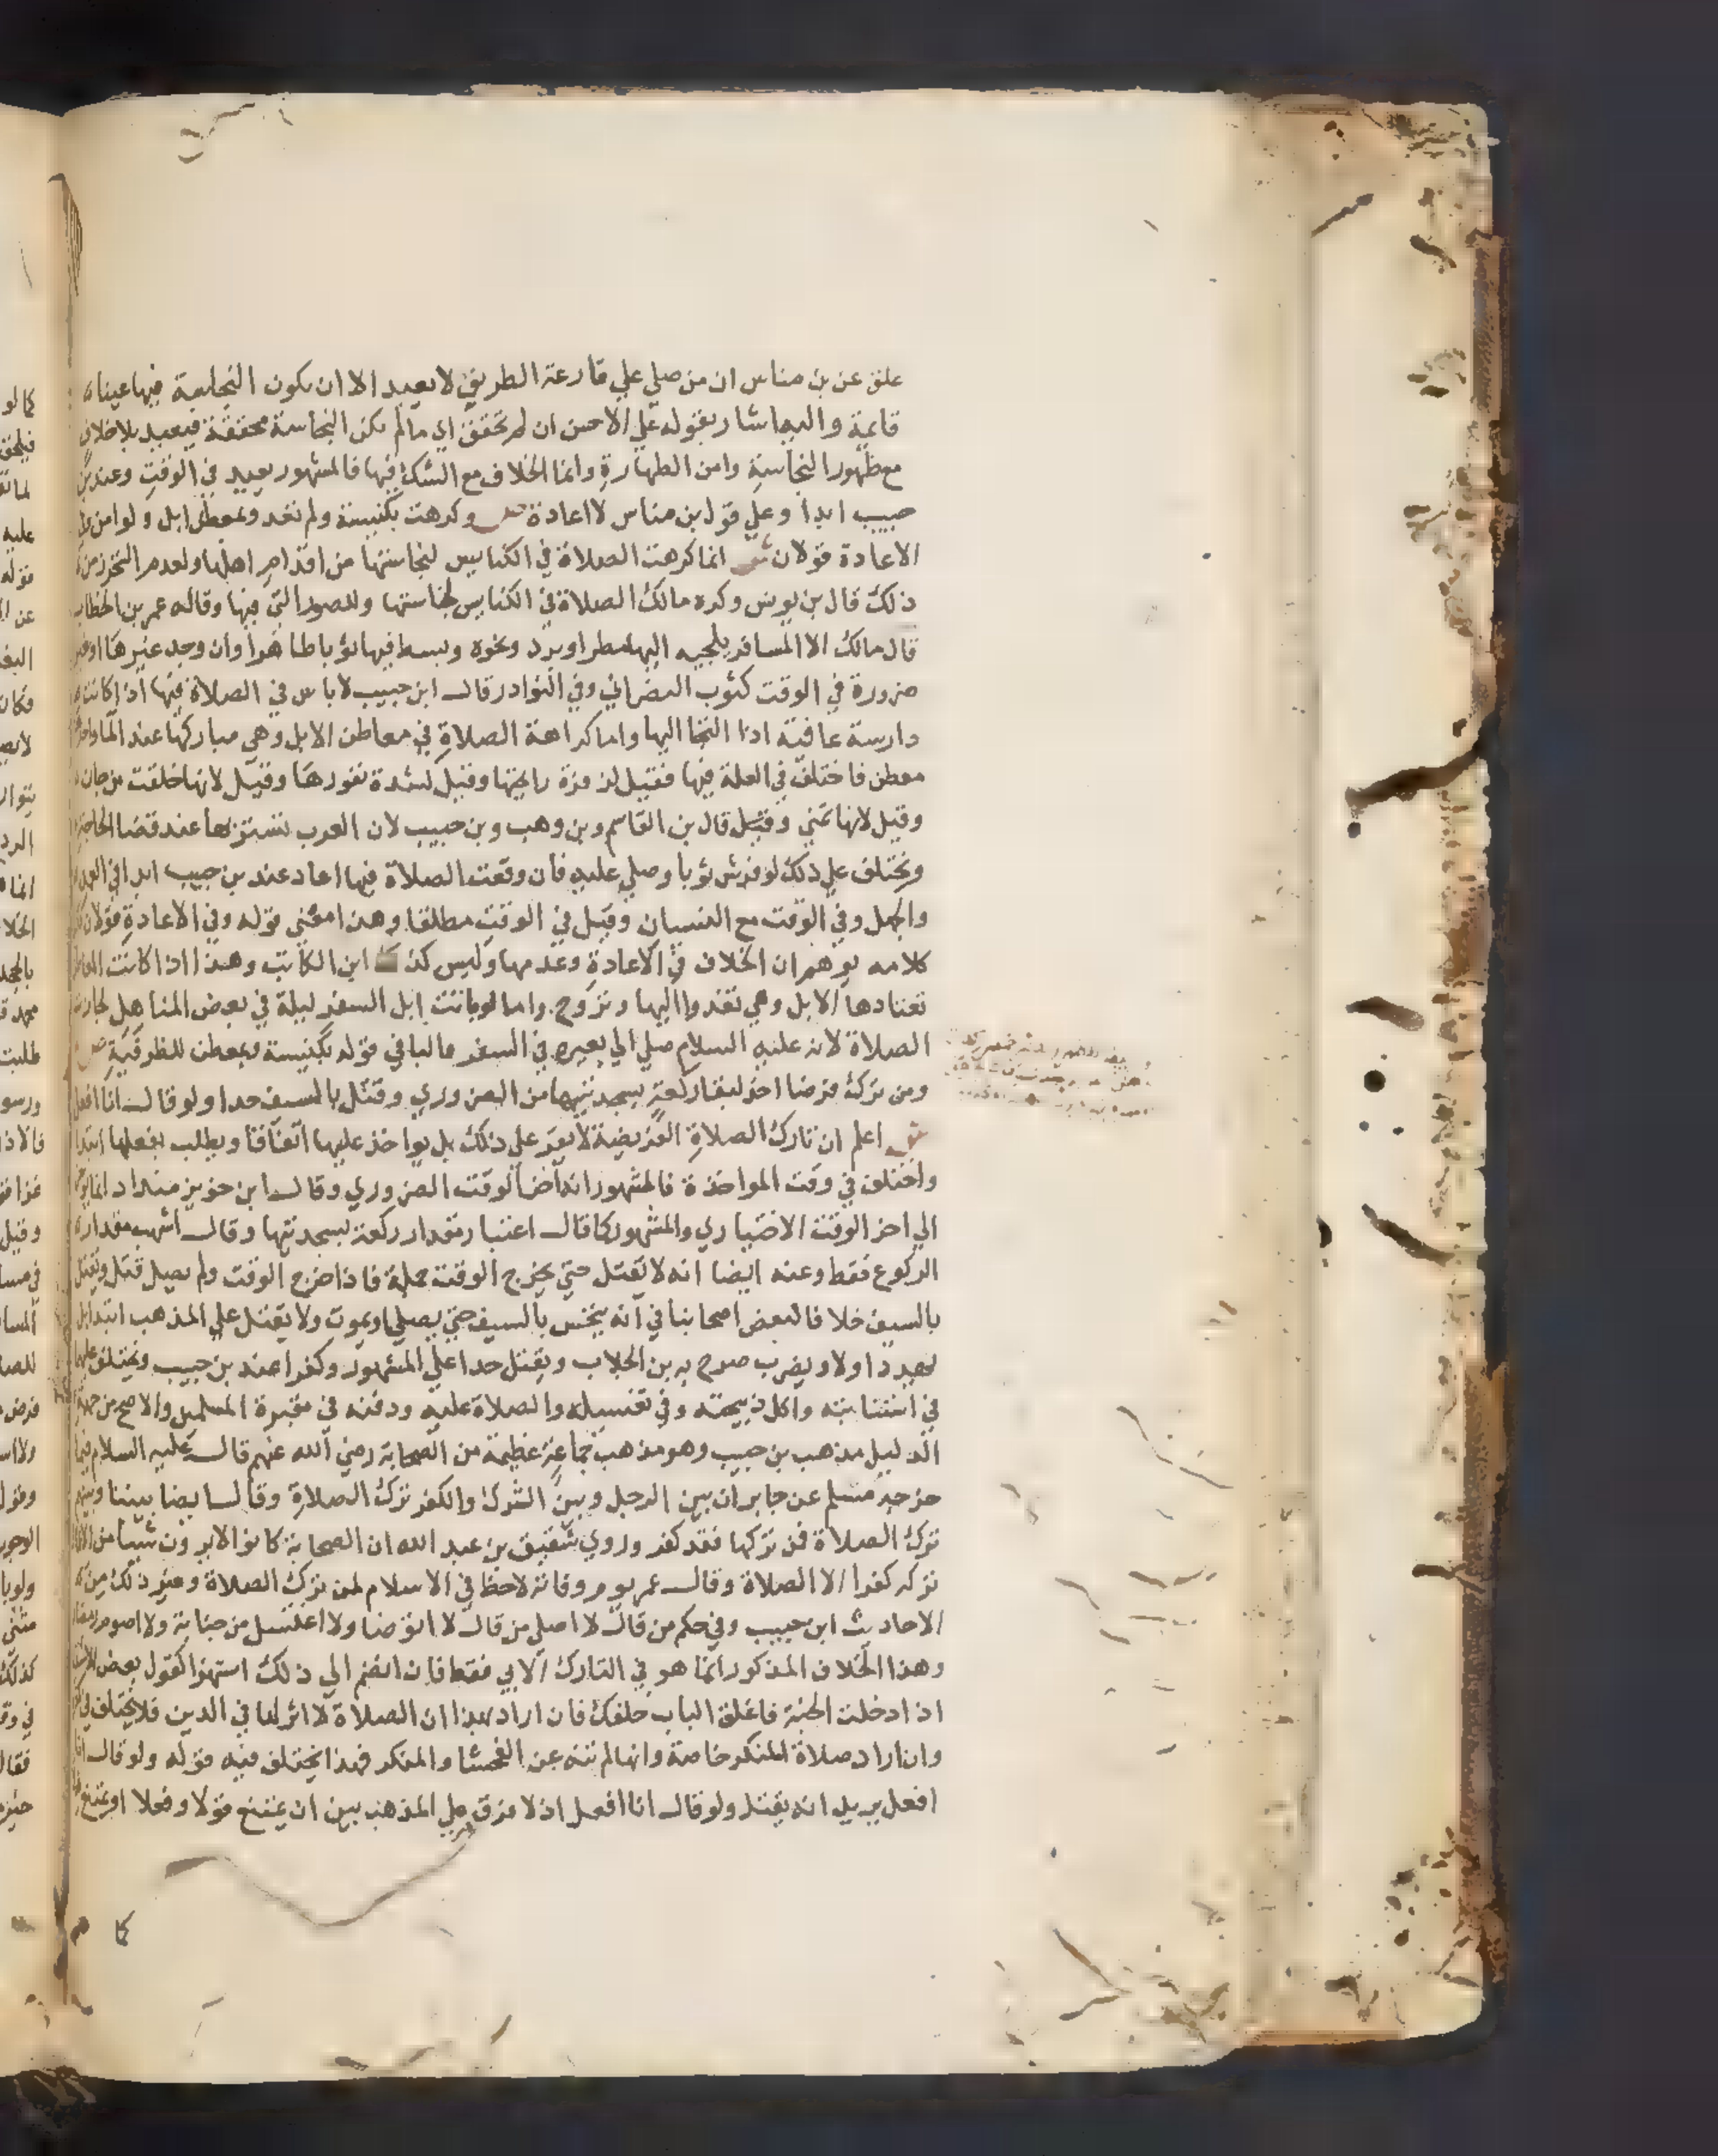 علق عن بن مناس ان من صلي علي قارعة الطريق لا يعيد الا ان يكون النجاسة فيها عينا
قايمة واليه اشار بقوله علي الاحسن ان لم تحقق اي ما لم تكن النجاسة محققة فيعيد بلا خلاف
مع ظهور النجاسة وامن الطهارة وانما الخلاف مع الشك فيها فالمشهور يعيد في الوقت وعند بن
حبيب ابدا وعلي قول بن مناس لا اعادة ص وكرهت بكنيسة ولم تعد وبمعطن ابل ولو امن وفي
الاعادة قولان ش انما كرهت الصلاة في الكنايس لنجاستها من اقدام اهلها ولعدم التحرز من
ذلك قال بن يونس وكره مالك الصلاة في الكنايس لنجاستها وللصور التي فيها وقاله عمر بن الخطاب
قال مالك الا المسافر يلجيه اليها مطر او برد ونحوه ويبسط فيها ثوبا طاهرا وان وجد غيرها
ضرورة في الوقت كثوب النصراني وفي النوادر قال ابن حبيب لا باس في الصلاة فيها اذا كانت
دارسة عافية اذا التجا اليها واما كراهة الصلاة في معاطن الابل وهي مباركها عند الما واحدها
معطن فاختلف في العلة فيها فقيل لزفرة رايحتها وقيل لشدة نفورها وقيل لانها خلقت من جان
وقيل لانها تمني وقيل قال بن القاسم وبن وهب وبن حبيب لان العرب تستتر بها عند قضا الحاجة
ويختلف علي ذلك لو فرش ثوبا وصلي عليه فان وقعت الصلاة فيها اعاد عند بن حبيب ابدا في العمد
والجهل وفي الوقت مع النسيان وقيل في الوقت مطلقا وهذا معني قوله وفي الاعادة قولان
كلامه يوهم ان الخلاف في الاعادة وعدمها وليس كذلك ابن الكاتب وهذا اذا كانت المعاطن
تعتادها الابل وهي تغدوا اليها وتروح واما لو باتت ابل السفر ليلة في بعض المناهل لجازت
الصلاة لانه عليه السلام صلي الي بعيره في السفر فالبا في قوله بكنيسة وبمعطن للظرفية ص
ومن ترك فرضا اخر لبقا ركعة بسجدتيها من الضروري وقتل بالسيف حدا ولو قال انا افعل
ش اعلم ان تارك الصلاة الفريضة لا يقر علي ذلك بل يواخذ عليها اتفاقا ويطلب بفعلها ابتدا
واختلف في وقت المواخذة فالمشهور انه اخر الوقت الضروري وقال ابن خويز منداد انما يوخر
الي اخر الوقت الاختياري والمشهور كما قال اعتبار مقدار ركعة بسجدتيها وقال اشهب مقدار
الركوع فقط وعنه ايضا انه لا يقتل حتي يخرج الوقت جملة فاذا خرج الوقت ولم يصل قتل ويقتل
بالسيف خلافا لبعض اصحابنا في انه ينخس بالسيف حتي يصلي او يموت ولا يقتل علي المذهب ابتدا بل
يهدد اولا ويضرب صرح به بن الجلاب ويقتل حدا علي المشهور وكفرا عند بن حبيب ويختلف عليهما
في استتابته واكل ذبيحته وفي تغسيله والصلاة عليه ودفنه في مقبرة المسلمين والاصح من جهة
الدليل مذهب بن حبيب وهو مذهب جماعة عظيمة من الصحابة رضي الله عنهم قال عليه السلام فيما
خرجه مسلم عن جابر ان بين الرجل وبين الشرك والكفر ترك الصلاة وقال ايضا بيننا وبينهم
ترك الصلاة فمن تركها فقد كفر وروي شقيق بن عبد الله ان الصحابة كانوا لا يرون شيا من الاعمال
تركه كفرا الا الصلاة وقال عمر يوم وفاته لا حظ في الاسلام لمن ترك الصلاة وغير ذلك من
الاحاديث ابن حبيب وفي حكم من قال لا اصلي من قال لا اتوضا ولا اغتسل من جنابة ولا اصوم رمضان
وهذا الخلاف المذكور انما هو في التارك الابي فقط فان انضم الي ذلك استهزا كقول بعض
اذا دخلت الجنة فاغلق الباب خلفك فان اراد بهذا ان الصلاة لا اثر لها في الدين فلا يختلف في
وان اراد صلاة المنكر خاصة وانها لم تنه عن الفحشا والمنكر فهذا يختلف فيه قوله ولو قال انا
افعل يريد انه يقتل ولو قال انا افعل اذ لا فرق علي المذهب بين ان يمتنع قولا وفعلا او يمتنع
كا